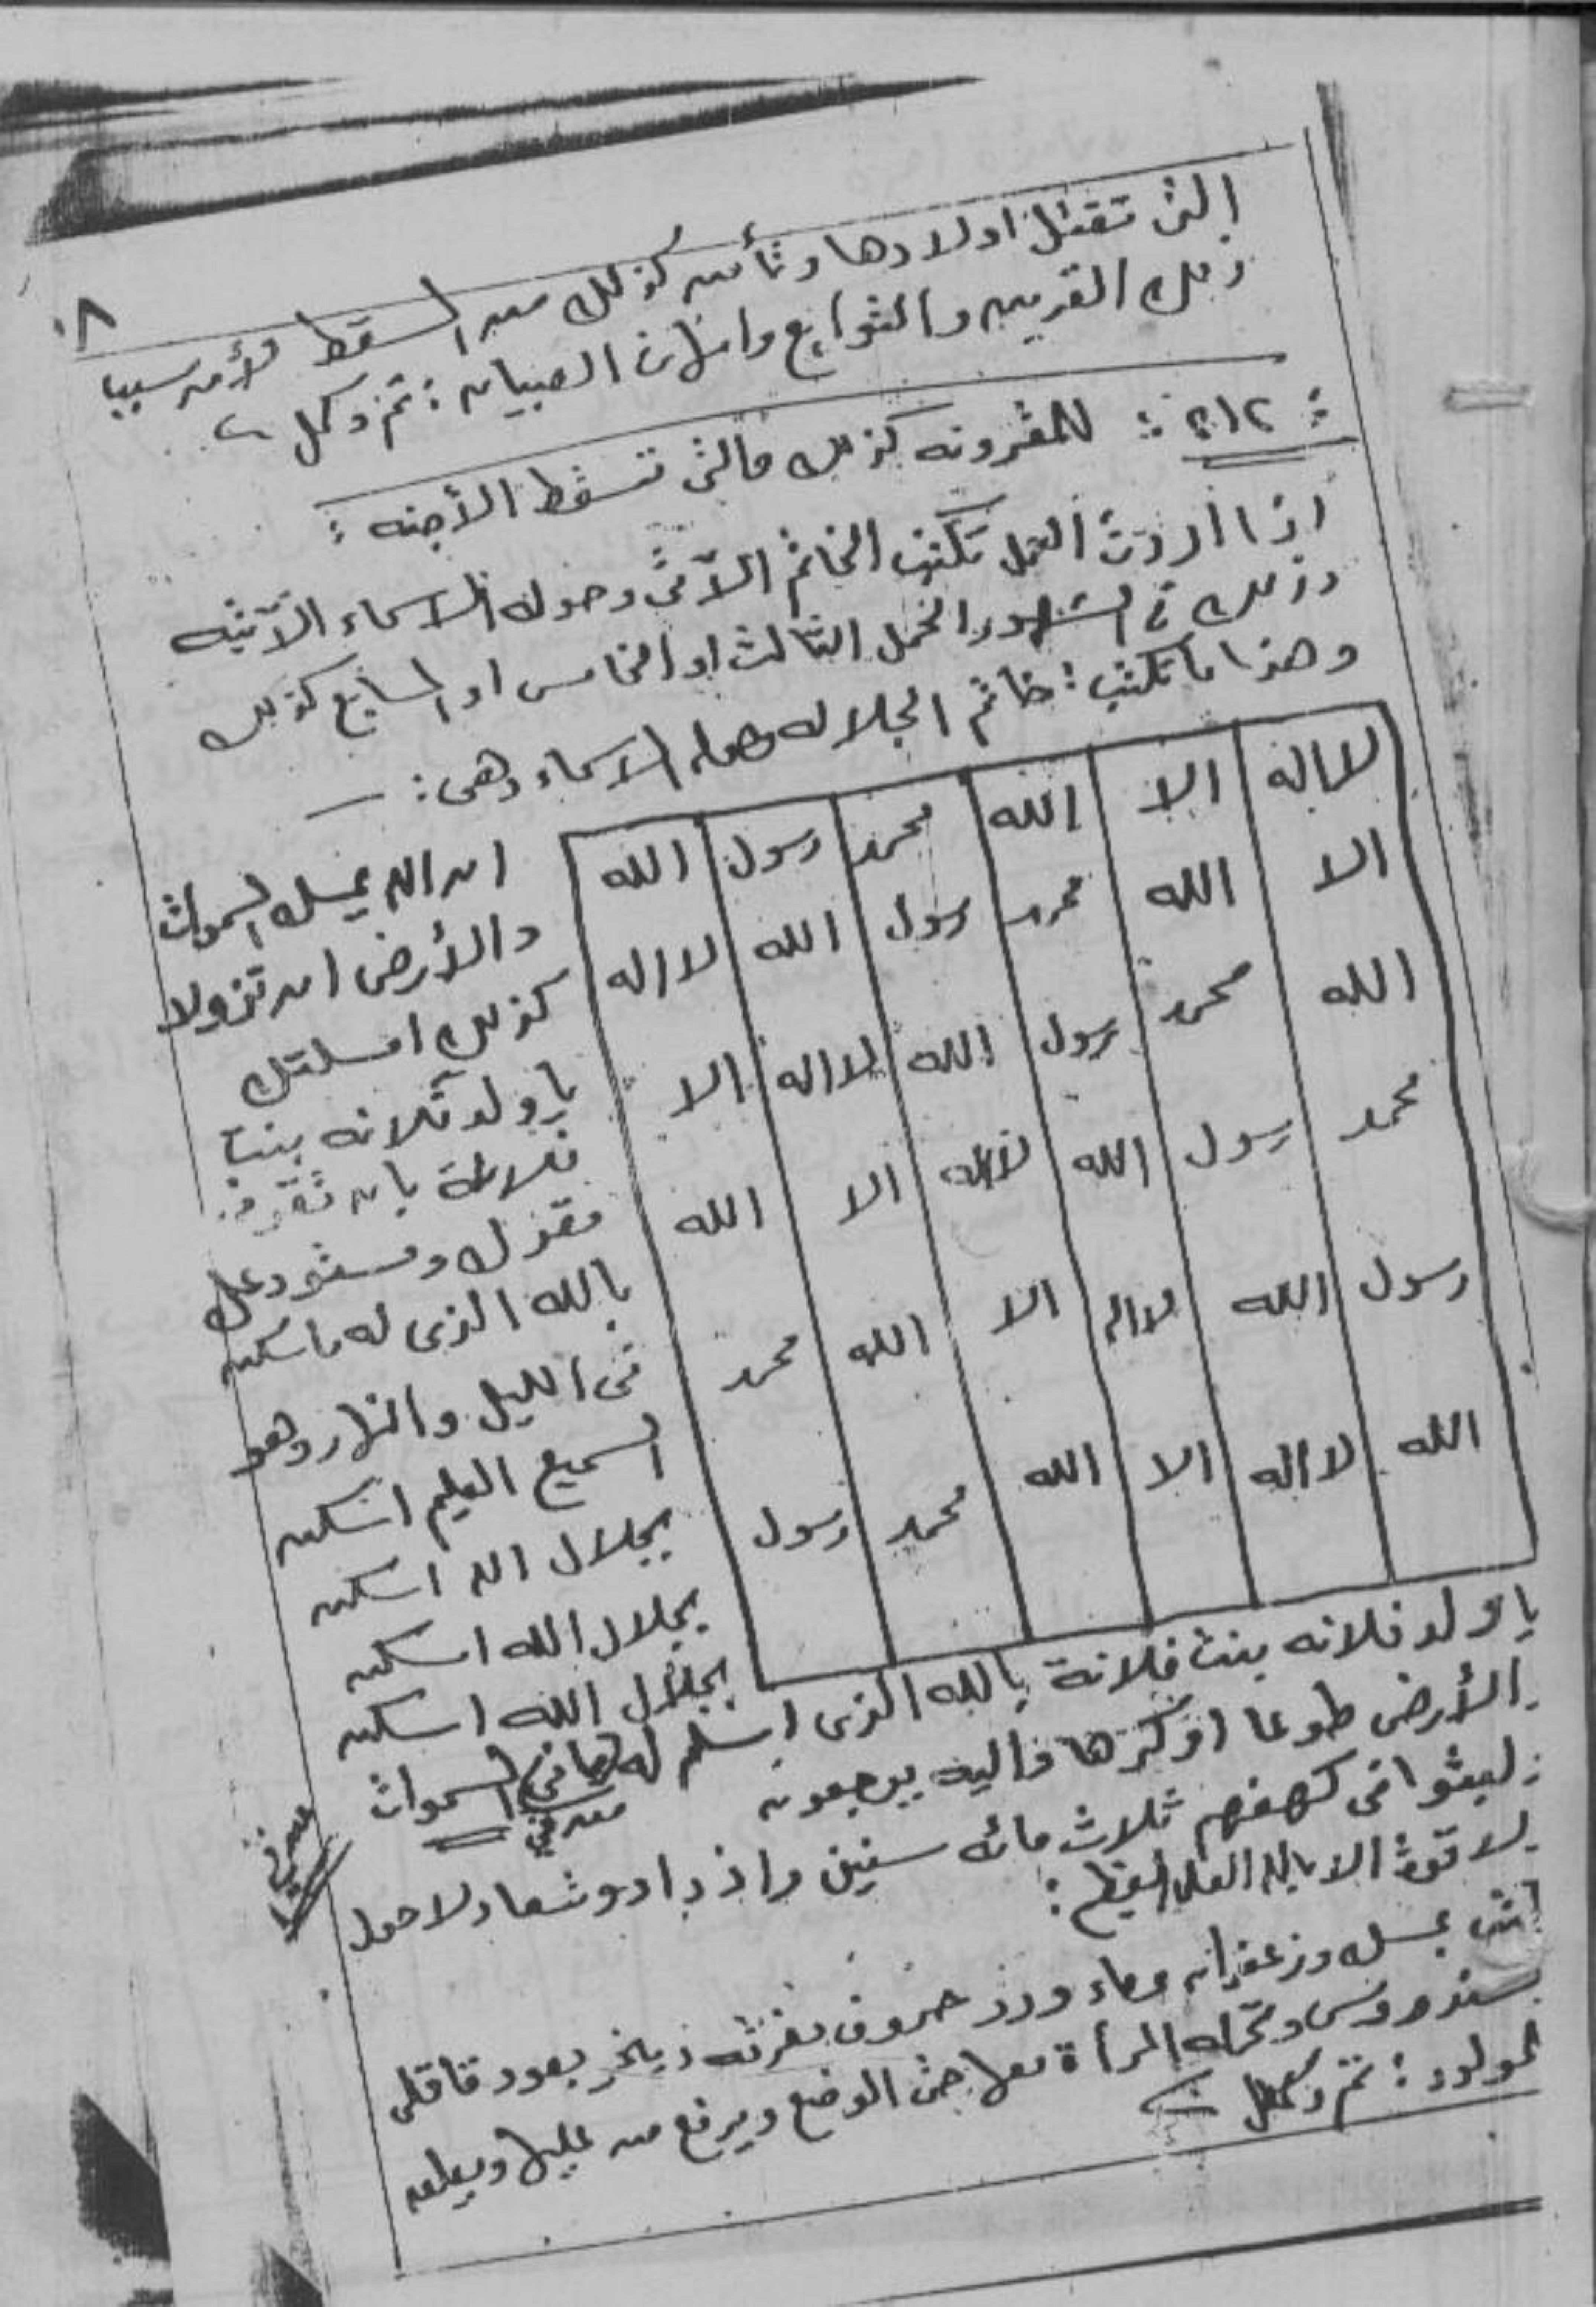 ٨
التى تقتل اولادها وتأمن كذلك من السقط لأمر سببا
ذلك القرين والتوابع وامان الصبيان : تم وكمل
للمقرونه كذلك والتى تسقط الأجنه :
اذا اردت العمل تكتب الخاتم الآتى وحوله الاسماء الآتيه
وذلك فى الشهور الحمل الثالث او الخامس او السابع كذلك
وهذا ما تكتب : خاتم الجلاله وحوله الاسماء وهى :
لا اله الا الله محمد رسول الله
الا الله محمد رسول الله لا اله
الله محمد رسول الله لا اله الا
محمد رسول الله لا اله الا الله
رسول الله لا اله الا الله محمد
الله لا اله الا الله محمد رسول
ان الله يمسك السموات
والأرض ان تزولا
كذلك امسكتك
يا ولد فلانه بنت
فلانة بان
مقرك ومستودعك
بالله الذى له ما سكن
فى الليل والنهار وهو
السميع العليم اسكن
بجلال الله اسكن
بجلال الله اسكن
بجلال الله اسكن
يا ولد فلانه بنت فلانة بالله الذى اسلم له من فى السموات
والأرض طوعا او كرها واليه يرجعون
ولبثوا فى كهفهم ثلاث مائه سنين وازدادو تسعا ولا حول
ولا قوة الا بالله العلى العظيم :
عسل وزعفران وماء ورد حروف مفرقه ويبخر بعود قاقلى
سندروس وتحمله المرأة معها حتى الوضع ويرفع من عليها ويعلق
المولود : تم وكمل